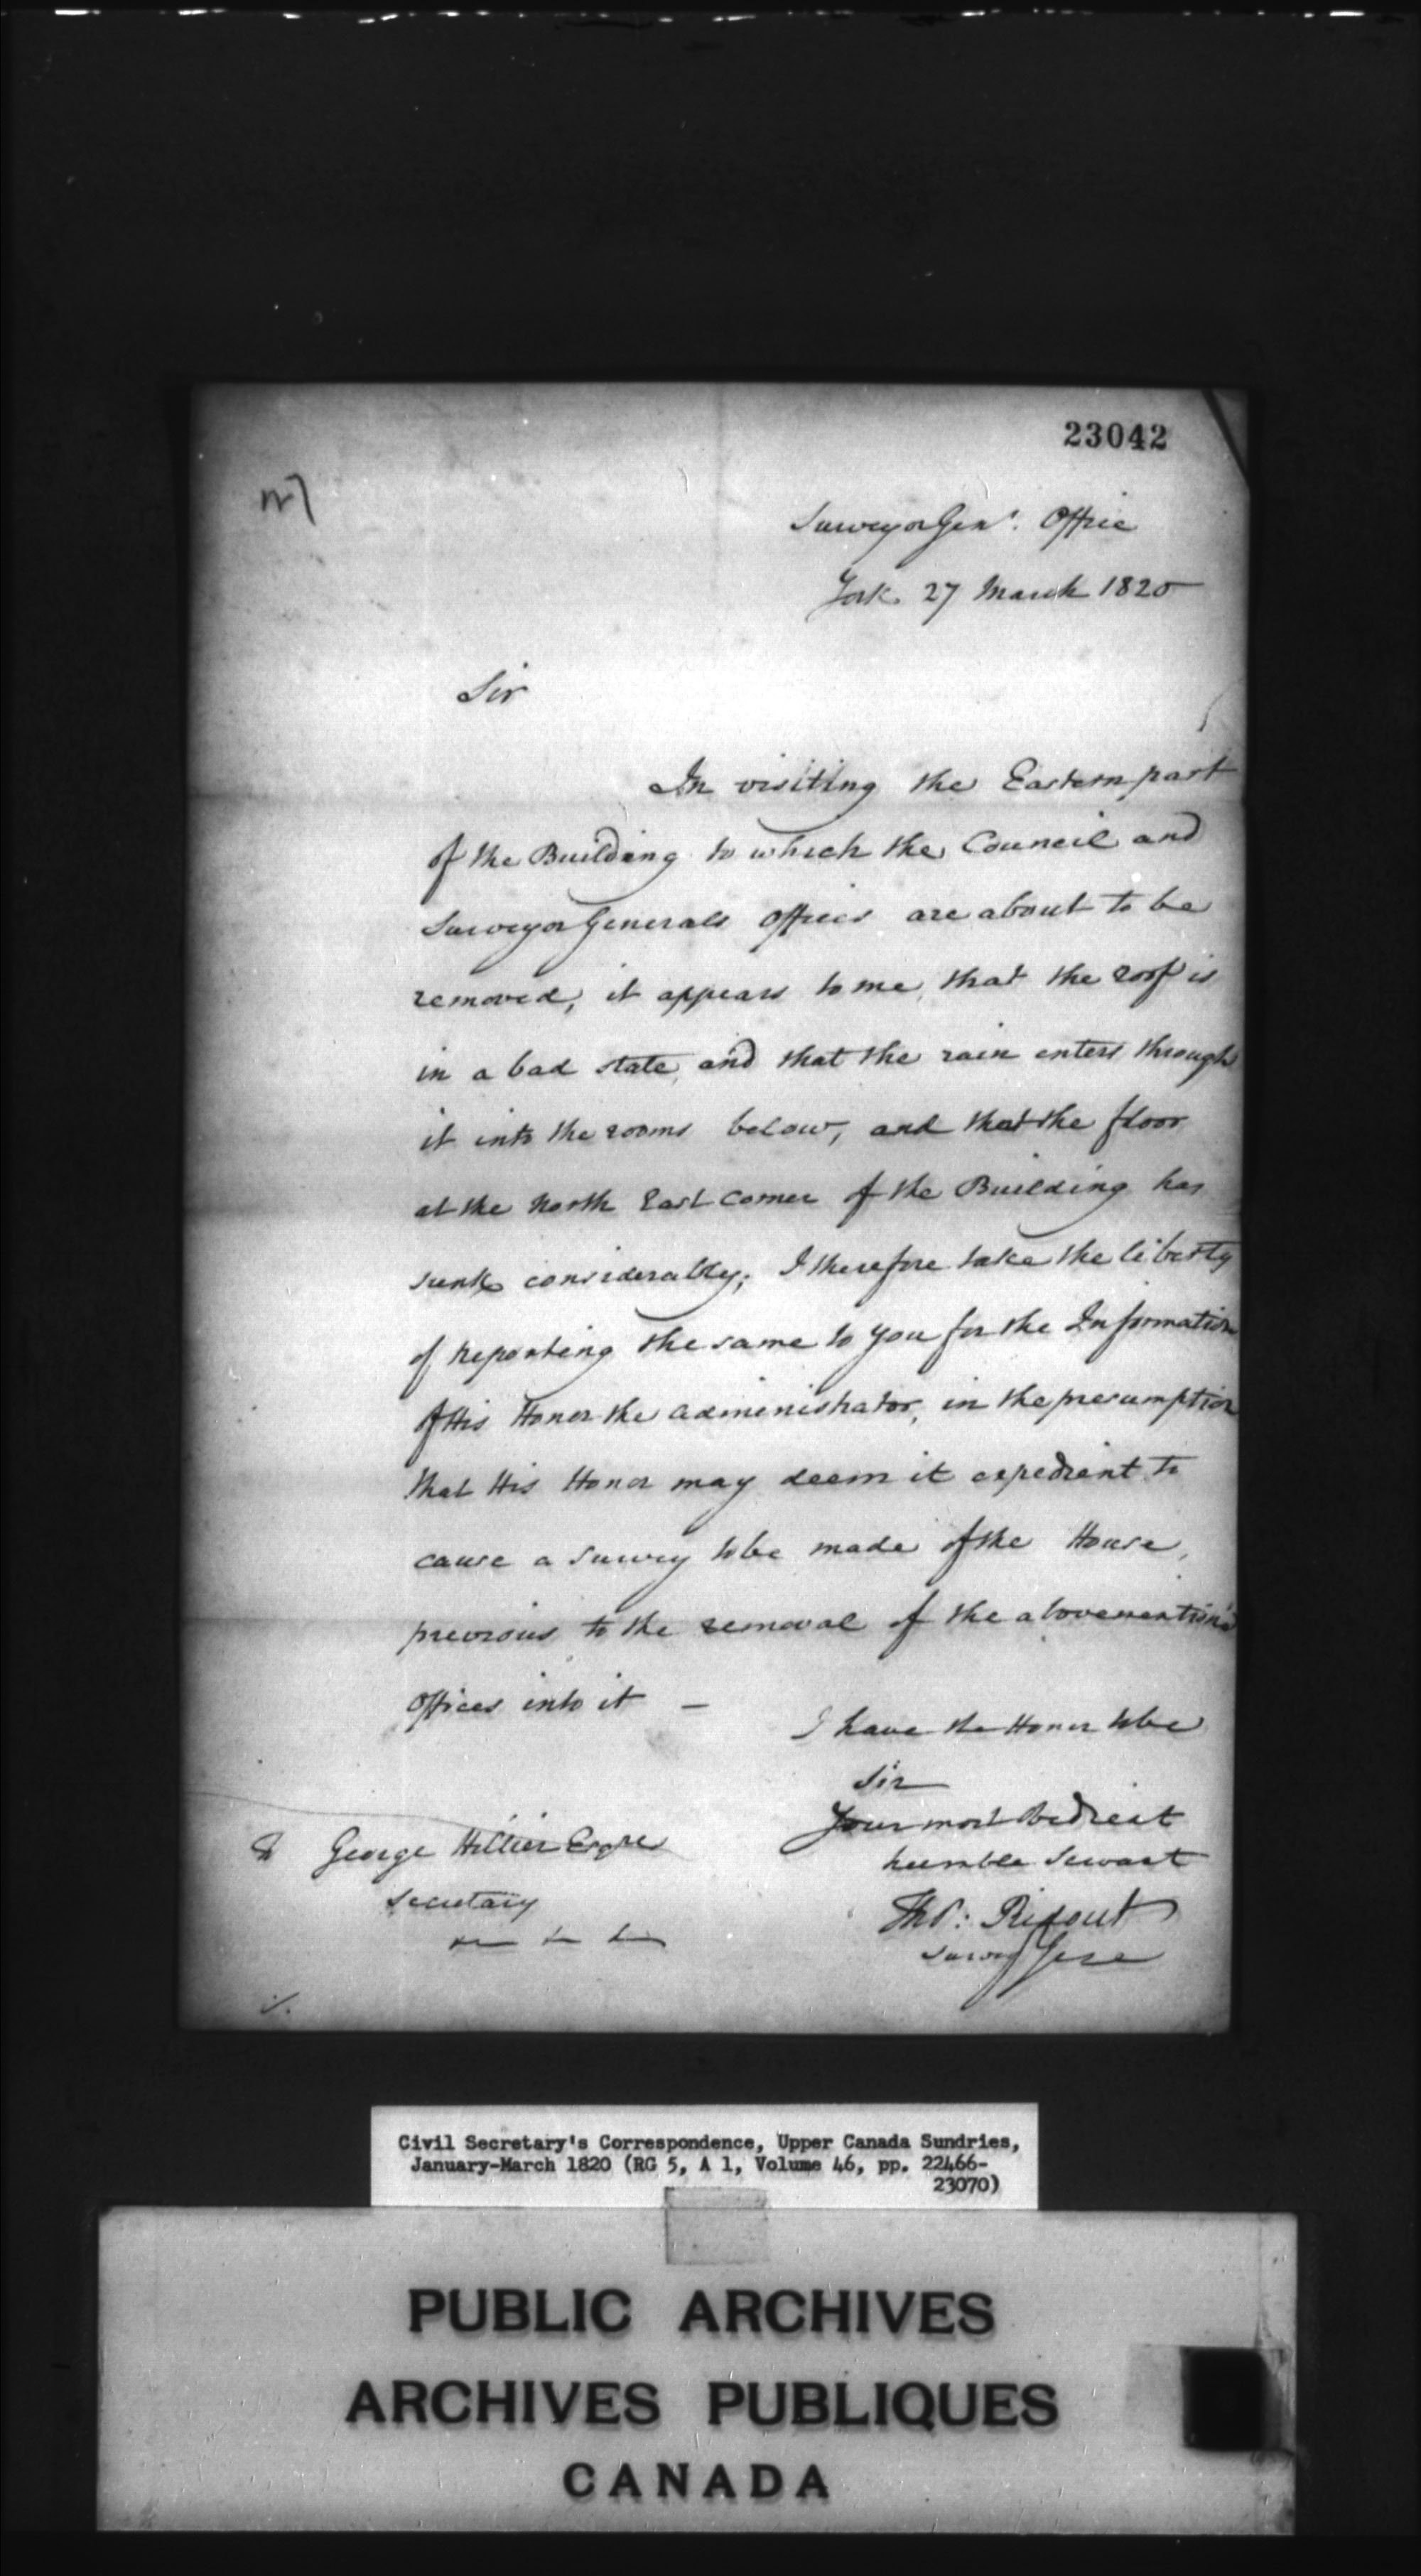 23042
Surveyor Genl. Office
York 27 March 1820
Sir
In visiting the Eastern part
of the Building to which the Council and
Surveyor Generals offices are about to be
removed, it appears to me, that the roof is
in a bad state, and that the rain enters through
it into the rooms below, and that the floor
at the North East corner of the Building has
sunk considerably; I therefore take the liberty
of Reporting the same to you for the Information
of His Honor the Administrator, in the presumption
that His Honor may deem it expedient to
cause a survey to be made of the House,
previous to the removal of the abovemention'd
offices into it —
I have the Honor to be
Sir
Your most Obedient
humble Servant
Thos: Ridout
Survey Gene
George Hillier Esqre
Secretary
Civil Secretary's Correspondence, Upper Canada Sundries,
January-March 1820 (RG 5, A 1, Volume 46, pp. 22466-
23070)
PUBLIC ARCHIVES
ARCHIVES PUBLIQUES
CANADA